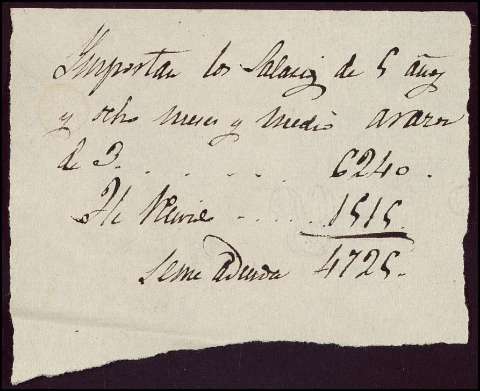 Importan los Salarios de 5 años
y ocho meses y medio a razon
de 3. . . . . . . 6240.
He Recivido . . . . 1515.
Seme adeuda 4725.